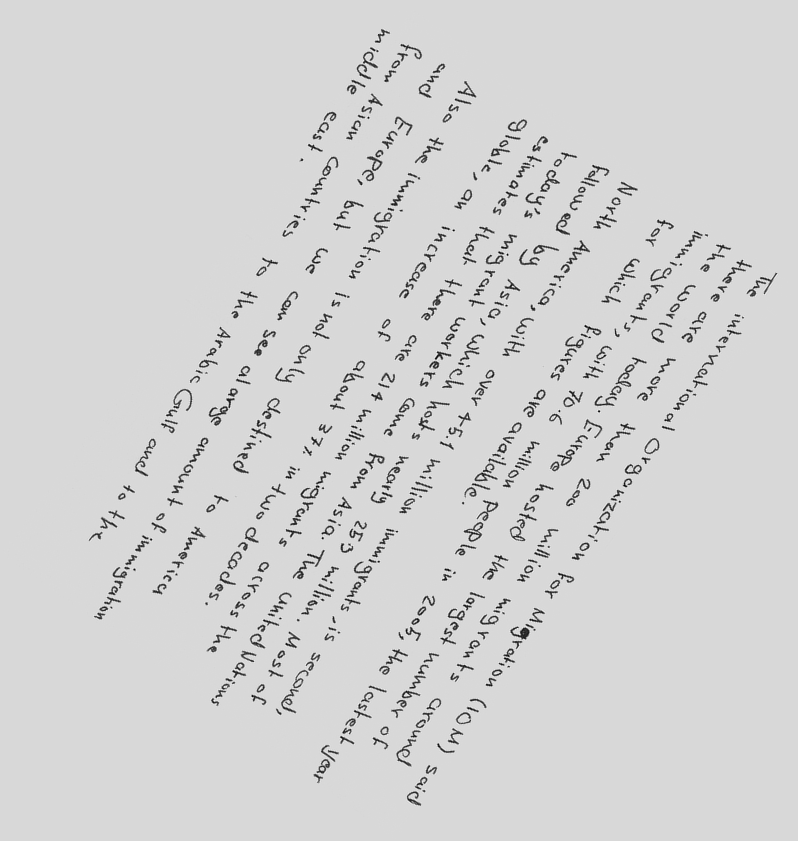 The international Organization for Migration (IOM) said
there are more then 200 million migrants around
the world today. Europe hosted the largest number of
immigrants, with 70.6 million people in 2005, the lastest year
for which figures are available.
North America, with over 45.1 million immigrants, is second,
followed by Asia, which hosts nearly 25.3 million. Most of
today's migrant workers come from Asia. The United Nations
estimates that there are 214 million migrants across the
globle, an increase of about 37% in two decades.
Also the immigration is not only destined to America
and Europe, but we can see alarge amount of immigration
from Asian countries to the Arabic Gulf and to the
middle east.